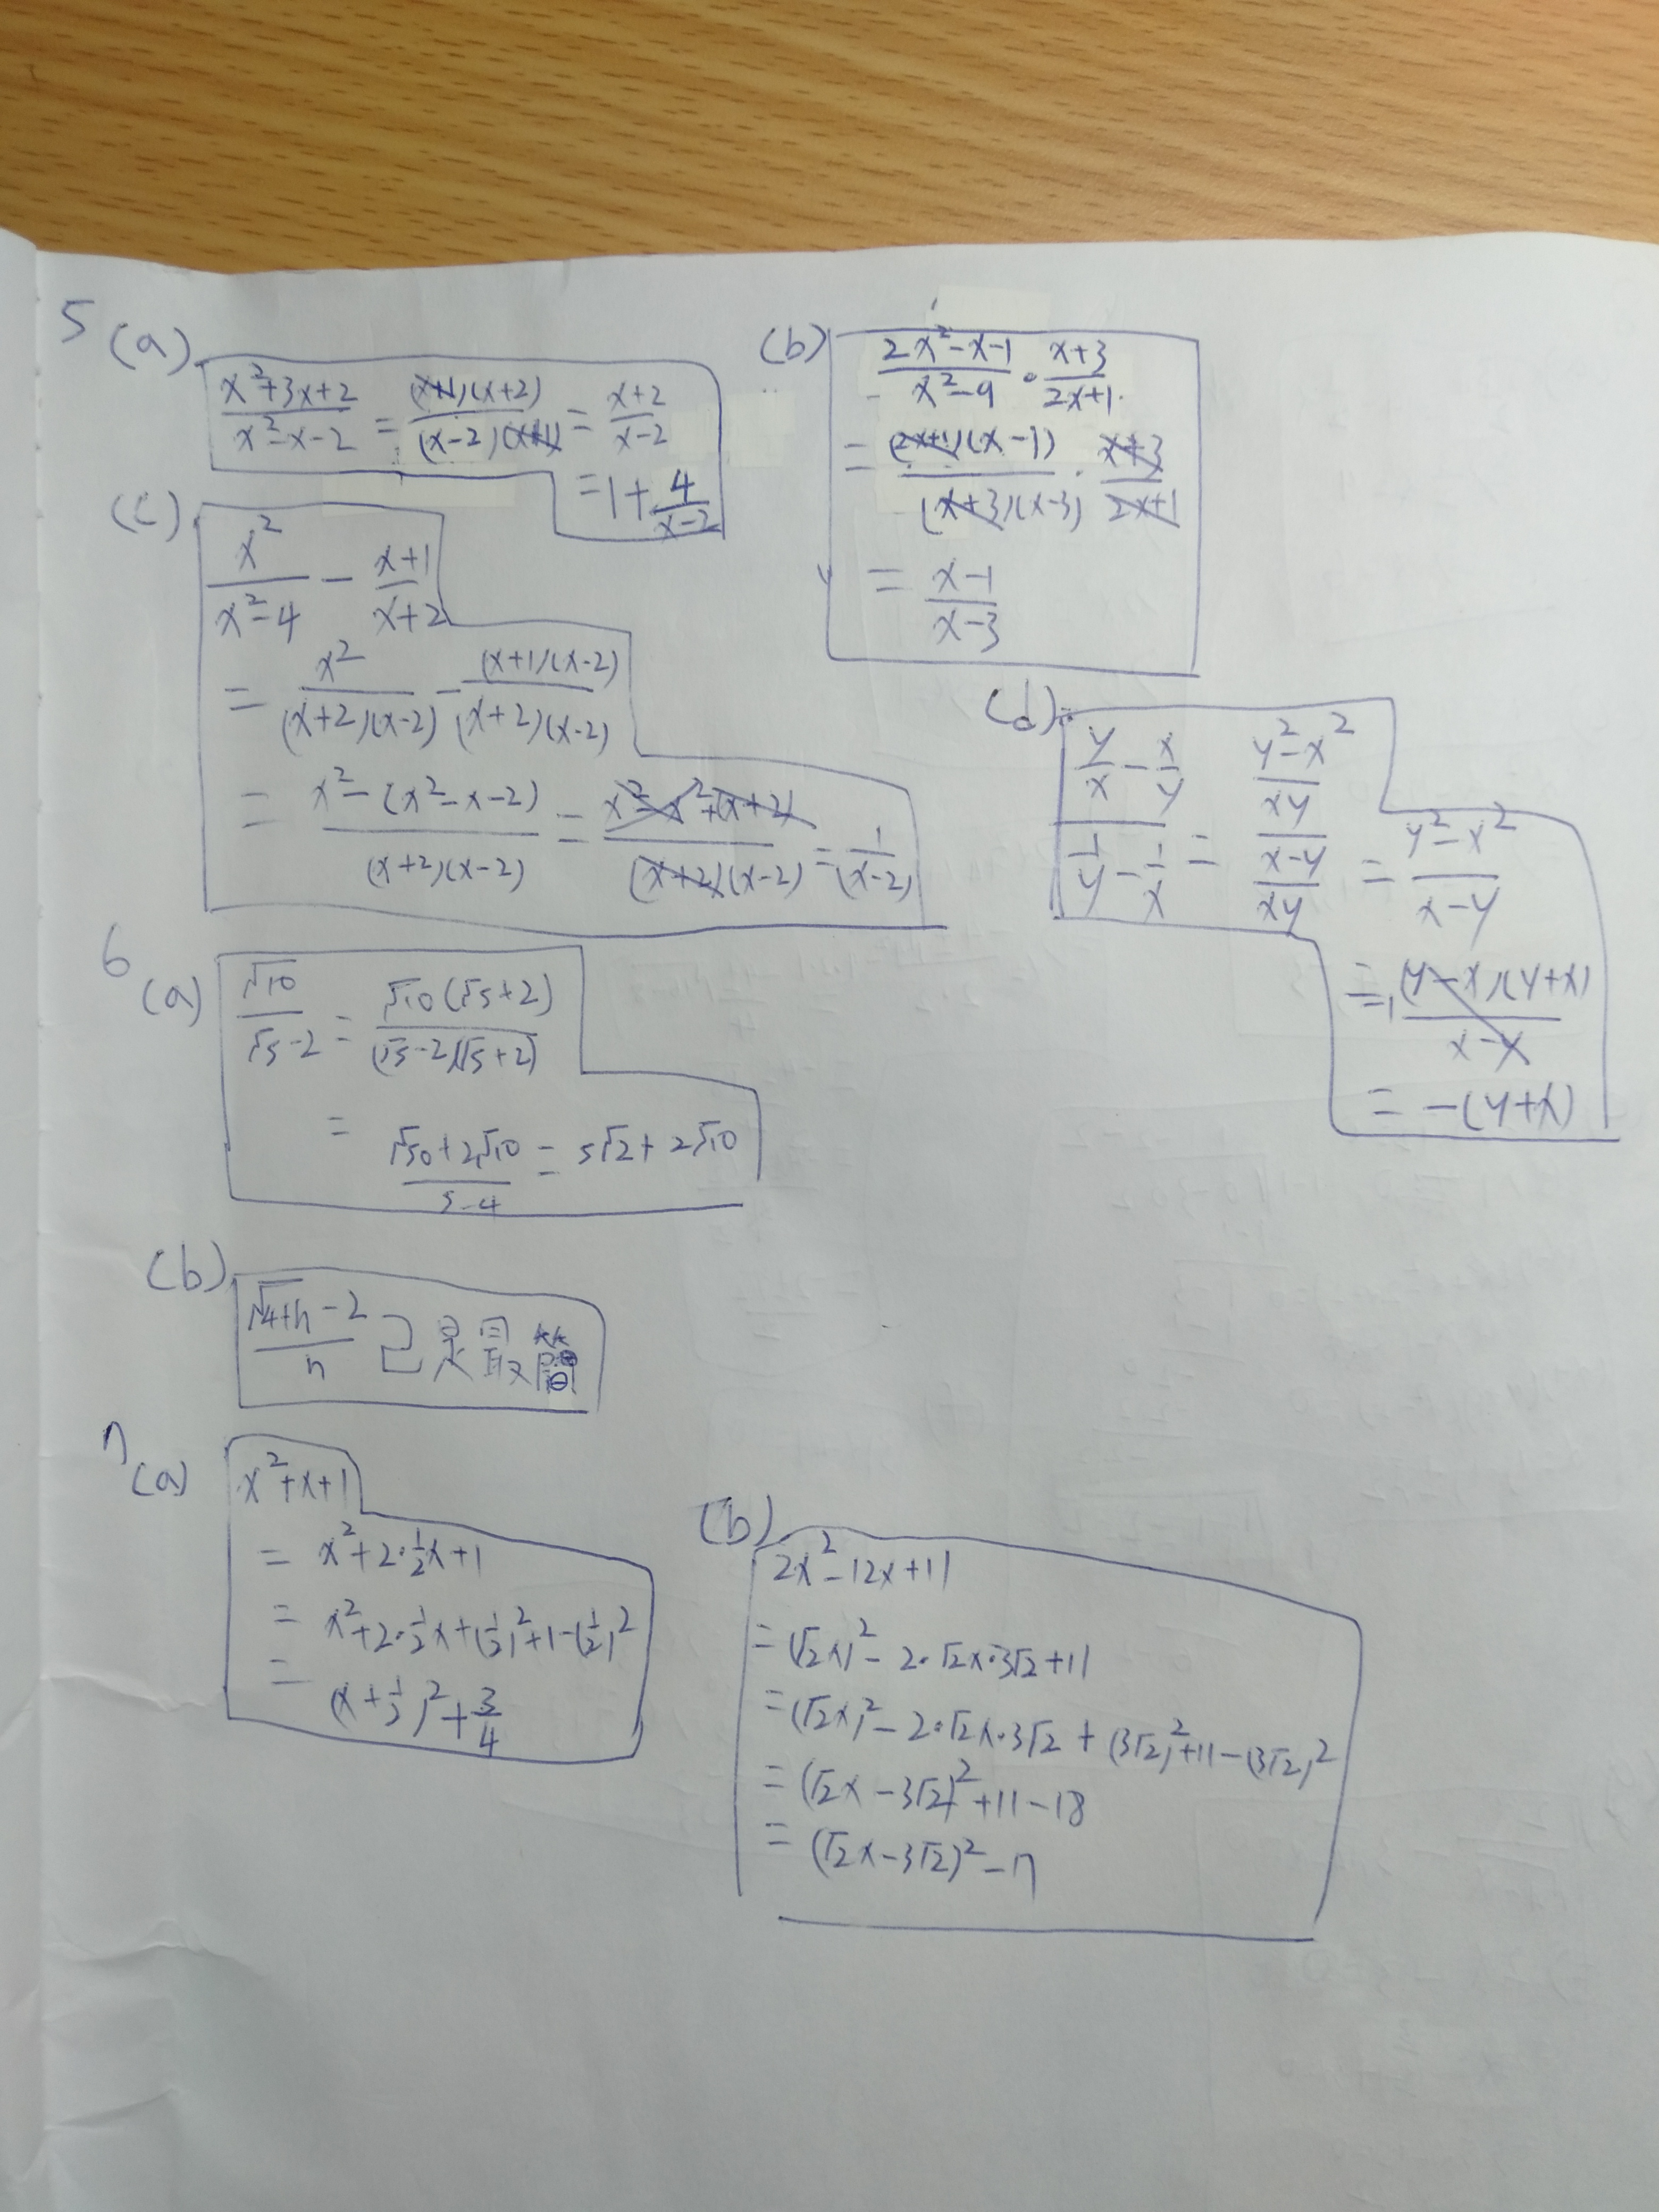 5 (a) (x²+3x+2)/(x²-x-2) = ((x+1)(x+2))/((x-2)(x+1)) = (x+2)/(x-2)
= 1 + 4/(x-2)
(b) (2x²-x-1)/(x²-9) · (x+3)/(2x+1)
= ((2x+1)(x-1))/((x+3)(x-3)) · (x+3)/(2x+1)
= (x-1)/(x-3)
(c) x²/(x²-4) - (x+1)/(x+2)
= x²/((x+2)(x-2)) - ((x+1)(x-2))/((x+2)(x-2))
= (x²-(x²-x-2))/((x+2)(x-2)) = (x²-x²+(x+2))/((x+2)(x-2)) = 1/(x-2)
(d) (y/x - x/y)/(1/y - 1/x) = ((y²-x²)/xy)/((x-y)/xy) = (y²-x²)/(x-y)
= ((y-x)(y+x))/(x-y)
= -(y+x)
6 (a) √10/(√5-2) = (√10(√5+2))/((√5-2)(√5+2))
= (√50+2√10)/(5-4) = 5√2+2√10
(b) (√(4+h)-2)/h 已是最簡
7 (a) x²+x+1
= x²+2·½x+1
= x²+2·½x+(½)²+1-(½)²
= (x+½)²+¾
(b) 2x²-12x+11
= (√2x)²-2·√2x·3√2+11
= (√2x)²-2·√2x·3√2+(3√2)²+11-(3√2)²
= (√2x-3√2)²+11-18
= (√2x-3√2)²-7